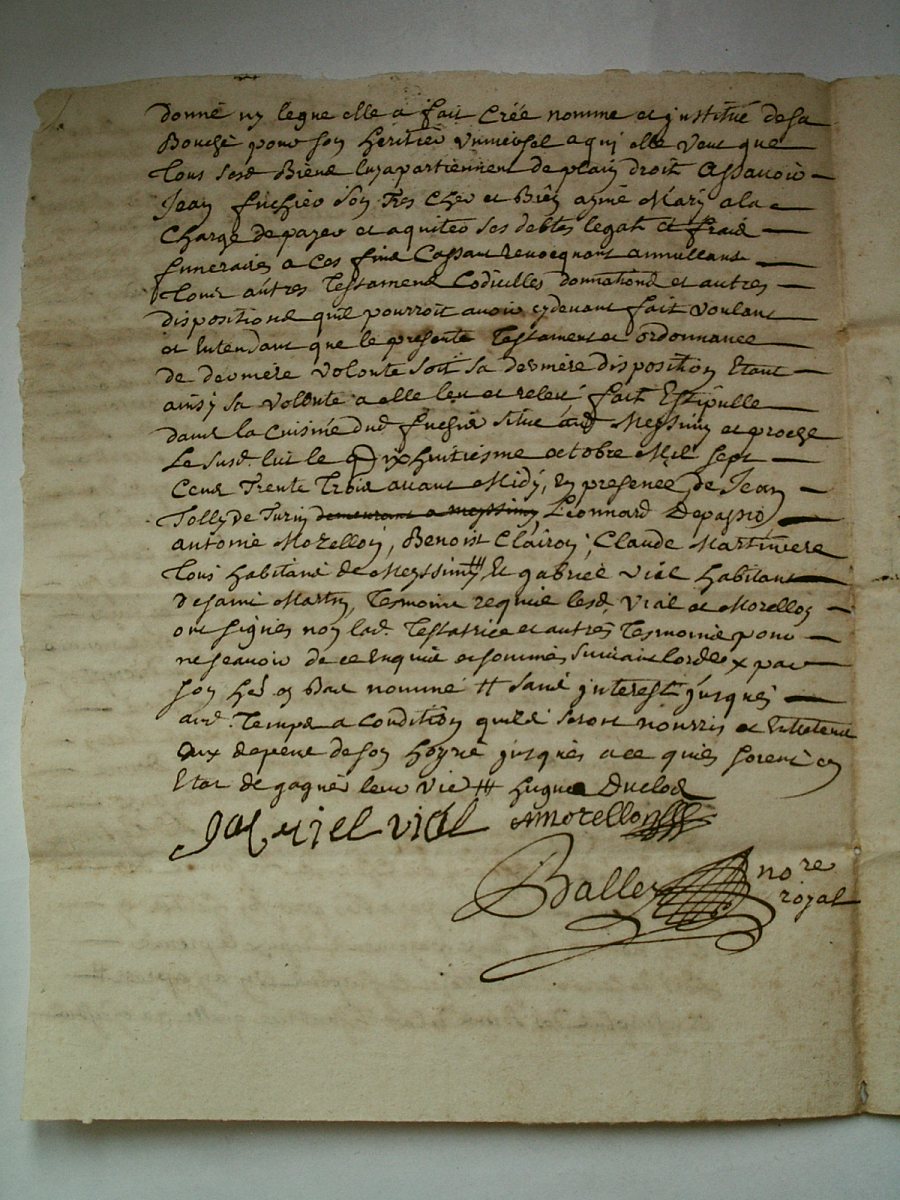 donné ny legue elle a fait Créé nommé et jnstitué de sa
Bouche pour son heritier Vniversel a qui elle Veut que
tous sesd. Biens luy apartiennent de plain droit Assavoir
Jean son tres Cher et Bien aymé Mary a la
Charge de payer et aquiter ses debtes legats et frais
funeraires a Ces fins Cassant revocquant annullant
tous autres Testamens Codicilles donnations et autres
dispositions quil pourroit avoir cydevant fait Voulant
et Entendant que le present Testament et ordonnance
de derniere Volonté soit sa derniere disposition Etant
ainsi sa Vollonté a elle leu et releu fait Estipullé
dans la Cuisine dud. situé aud Meyssimy et proche
le susd. lit le Dixhuitiesme octobre Mil sept
Cens Trente Trois avant Midy, En presence de Jean
Tolly de Turin demeurant a meyssimy, Léonnard Depassio,
antoine Morellon, Benoist Clairon, Claude Martiniere
tous habitans de Meyssimy, Et gabriel Vial habitant
de saint Martin, Tesmoins requis lesd. Vial et Morellon
ont signés non lad. Testatrice et autres Tesmoins pour
ne scavoir de ce Enquis et sommés suivant lordce x par
son her. en Bas nommé # sans jnterest jusques
aud. Temps a Condition quils seront nourris et Entretenu
aux depens de son hoyrie jusques a ce quils soient en
Etat de gagner leur Vie # hugue Duclos
Jacquiel viol AMorellon
Balley no.re
royal